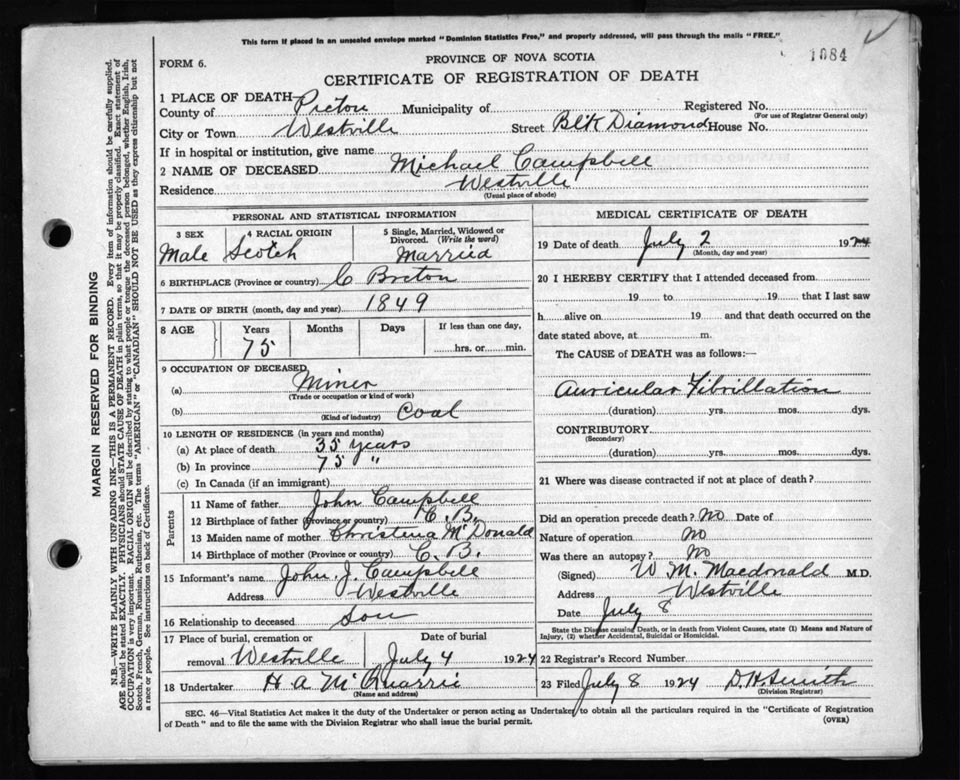 This form if placed in an unsealed envelope marked "Dominion Statistics Free," and properly addressed, will pass through the mails "FREE."
FORM 6.
PROVINCE OF NOVA SCOTIA
1084
CERTIFICATE OF REGISTRATION OF DEATH
1 PLACE OF DEATH
County of Pictou Municipality of Registered No.
(For use of Registrar General only)
City or Town Westville Street Blk Diamond House No.
If in hospital or institution, give name
2 NAME OF DECEASED Michael Campbell
Residence Westville
(Usual place of abode)
PERSONAL AND STATISTICAL INFORMATION
3 SEX 4 RACIAL ORIGIN 5 Single, Married, Widowed or Divorced. (Write the word)
Male Scotch Married
6 BIRTHPLACE (Province or country) C Breton
7 DATE OF BIRTH (month, day and year) 1849
8 AGE Years Months Days If less than one day,
75 hrs. or min.
9 OCCUPATION OF DECEASED
(a) Miner
(Trade or occupation or kind of work)
(b) Coal
(Kind of industry)
10 LENGTH OF RESIDENCE (in years and months)
(a) At place of death 35 years
(b) In province 75 "
(c) In Canada (if an immigrant)
Parents
11 Name of father John Campbell
12 Birthplace of father (Province or country) C. B.
13 Maiden name of mother Christena McDonald
14 Birthplace of mother (Province or country) C. B.
15 Informant's name John J. Campbell
Address Westville
16 Relationship to deceased Son
17 Place of burial, cremation or Date of burial
removal Westville July 4 1924
18 Undertaker H A McQuarrie
(Name and address)
MEDICAL CERTIFICATE OF DEATH
19 Date of death July 2 1924
(Month, day and year)
20 I HEREBY CERTIFY that I attended deceased from
19 to , 19 that I last saw
h alive on 19 and that death occurred on the
date stated above, at m.
The CAUSE of DEATH was as follows:—
Auricular Fibrillation
(duration) yrs. mos. dys.
CONTRIBUTORY
(Secondary)
(duration) yrs. mos. dys.
21 Where was disease contracted if not at place of death?
Did an operation precede death? No Date of
Nature of operation No
Was there an autopsy? No
(Signed) W M. Macdonald M.D.
Address Westville
Date July 8
State the Disease causing Death, or in death from Violent Causes, state (1) Means and Nature of
Injury, (2) whether Accidental, Suicidal or Homicidal.
22 Registrar's Record Number
23 Filed July 8 1924 D. H. Smith
(Division Registrar)
SEC. 46—Vital Statistics Act makes it the duty of the Undertaker or person acting as Undertaker to obtain all the particulars required in the "Certificate of Registration
of Death" and to file the same with the Division Registrar who shall issue the burial permit.
(OVER)
MARGIN RESERVED FOR BINDING
N.B.—WRITE PLAINLY WITH UNFADING INK—THIS IS A PERMANENT RECORD. Every item of information should be carefully supplied.
AGE should be stated EXACTLY. PHYSICIANS should STATE CAUSE OF DEATH in plain terms, so that it may be properly classified. Exact statement of
OCCUPATION is very important. RACIAL ORIGIN will be described by stating to what people or tongue the deceased person belonged, whether English, Irish,
Scotch, French, German, Russian, Ruthenian, etc. The terms "AMERICAN" or "CANADIAN" SHOULD NOT BE USED as they express citizenship but not
a race or people. See instructions on back of Certificate.